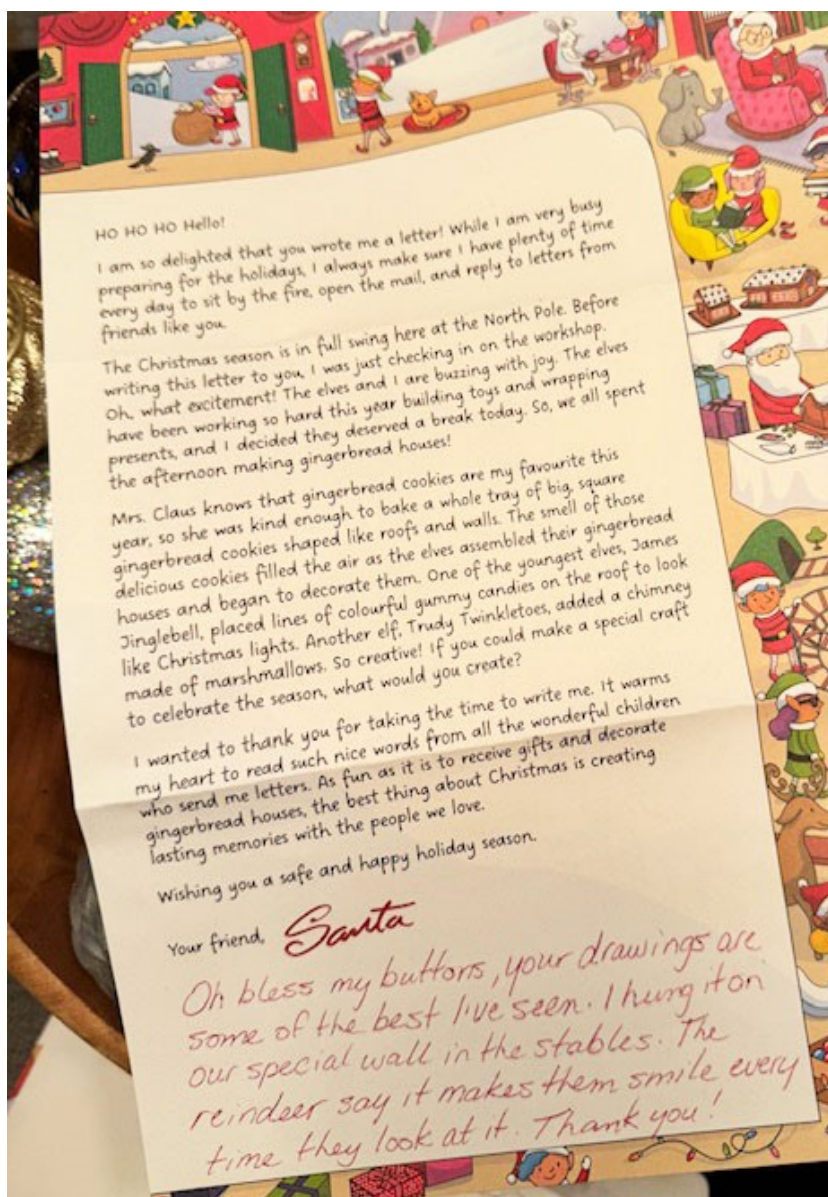 HO HO HO Hello!
I am so delighted that you wrote me a letter! While I am very busy
preparing for the holidays, I always make sure I have plenty of time
every day to sit by the fire, open the mail, and reply to letters from
friends like you.
The Christmas season is in full swing here at the North Pole. Before
writing this letter to you, I was just checking in on the workshop.
Oh, what excitement! The elves and I are buzzing with joy. The elves
have been working so hard this year building toys and wrapping
presents, and I decided they deserved a break today. So, we all spent
the afternoon making gingerbread houses!
Mrs. Claus knows that gingerbread cookies are my favourite this
year, so she was kind enough to bake a whole tray of big, square
gingerbread cookies shaped like roofs and walls. The smell of those
delicious cookies filled the air as the elves assembled their gingerbread
houses and began to decorate them. One of the youngest elves, James
Jinglebell, placed lines of colourful gummy candies on the roof to look
like Christmas lights. Another elf, Trudy Twinkletoes, added a chimney
made of marshmallows. So creative! If you could make a special craft
to celebrate the season, what would you create?
I wanted to thank you for taking the time to write me. It warms
my heart to read such nice words from all the wonderful children
who send me letters. As fun as it is to receive gifts and decorate
gingerbread houses, the best thing about Christmas is creating
lasting memories with the people we love.
Wishing you a safe and happy holiday season.
Your friend, Santa
Oh bless my buttons, your drawings are
some of the best I've seen. I hung it on
our special wall in the stables. The
reindeer say it makes them smile every
time they look at it. Thank you!